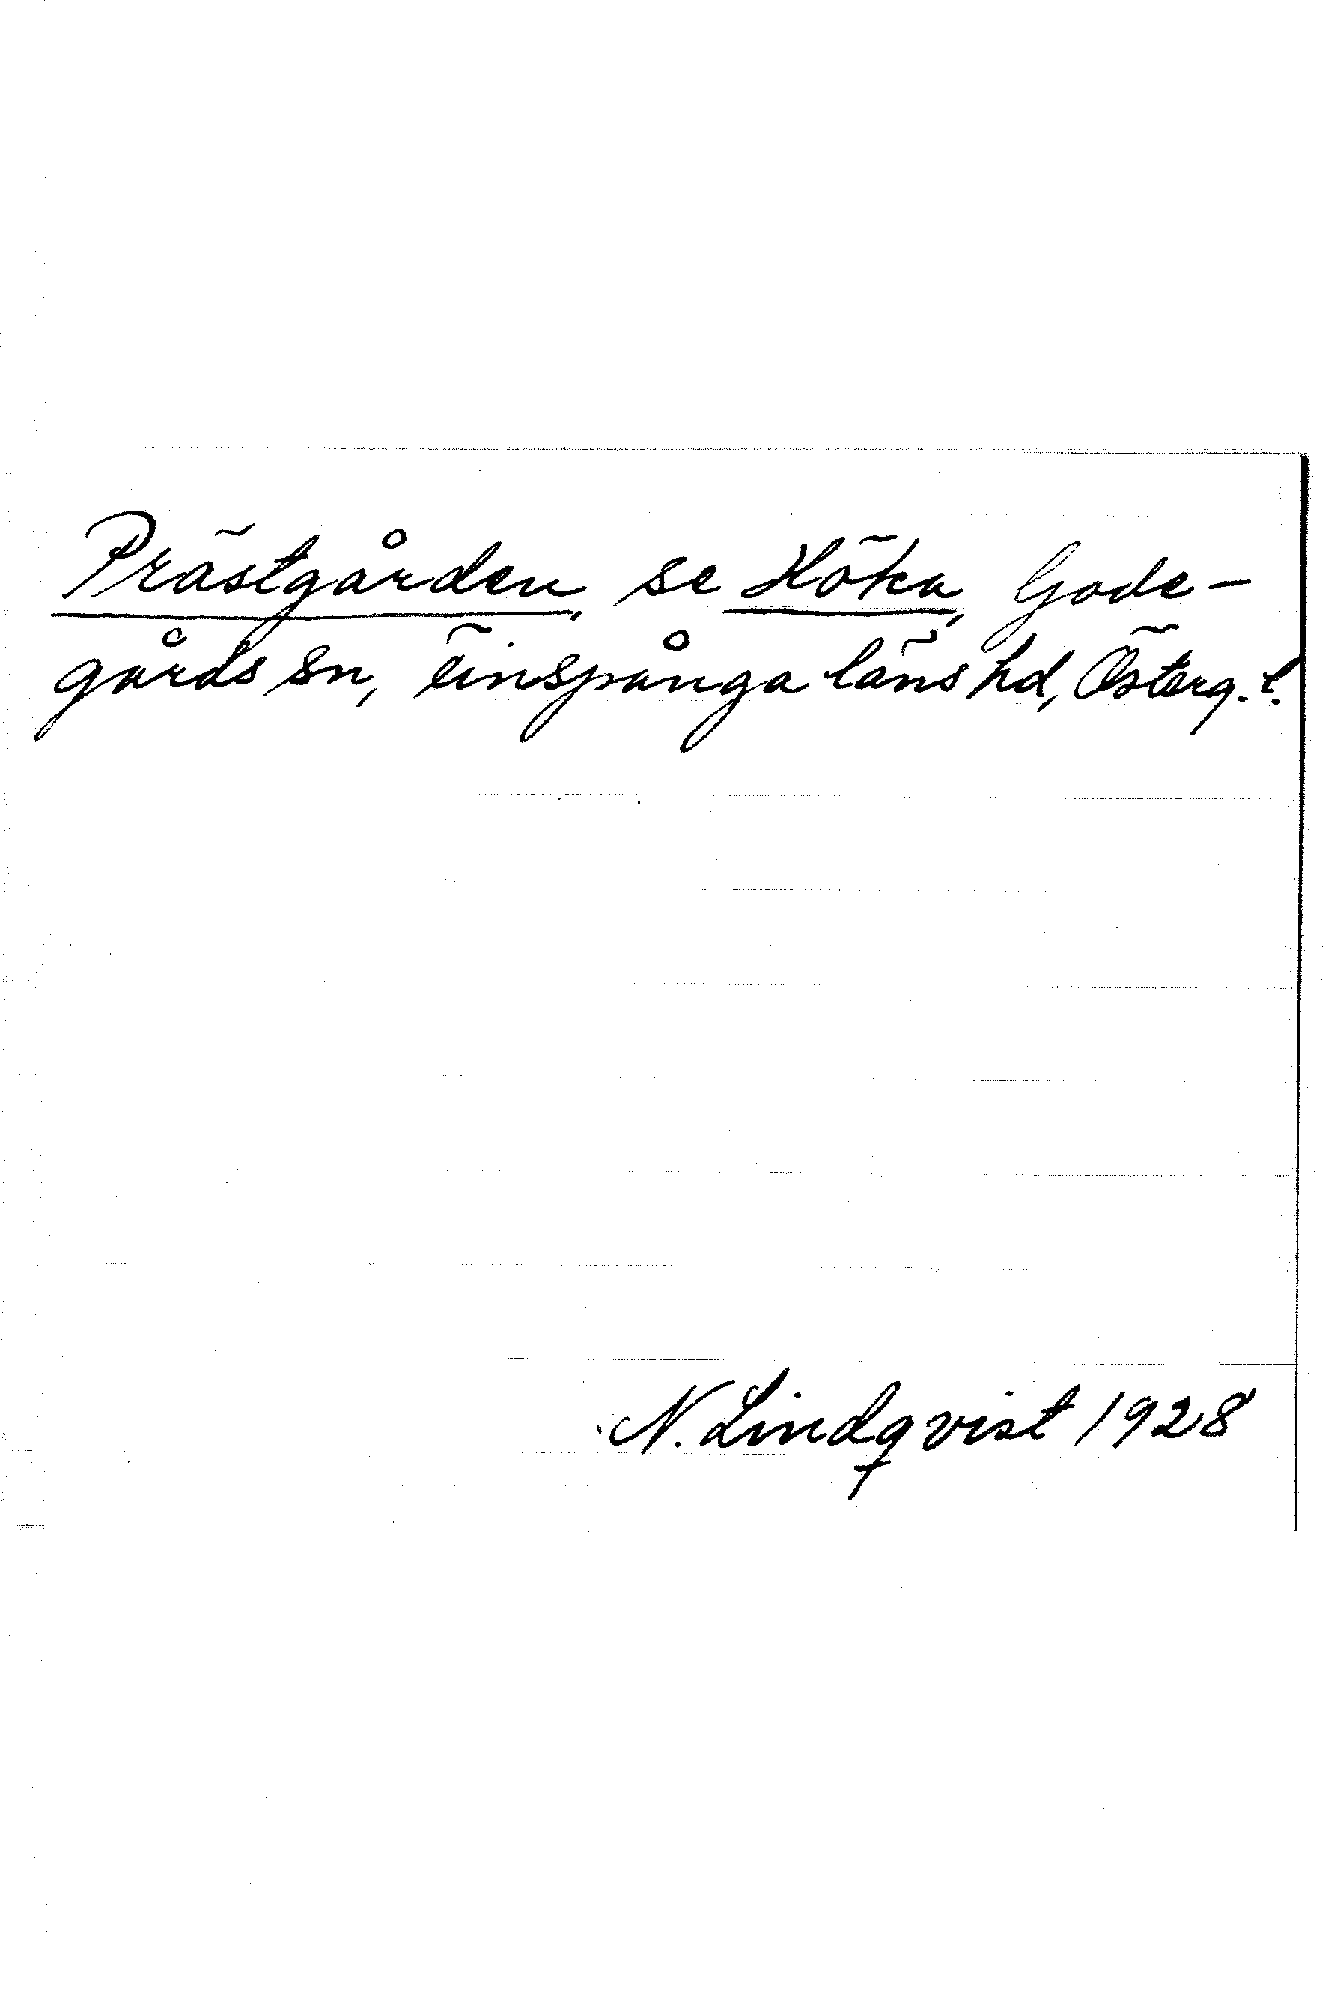 Prästgården, se Höka, Gode-
gårds sn, Finspånga läns hd, Österg. l.
N. Lindqvist 1928